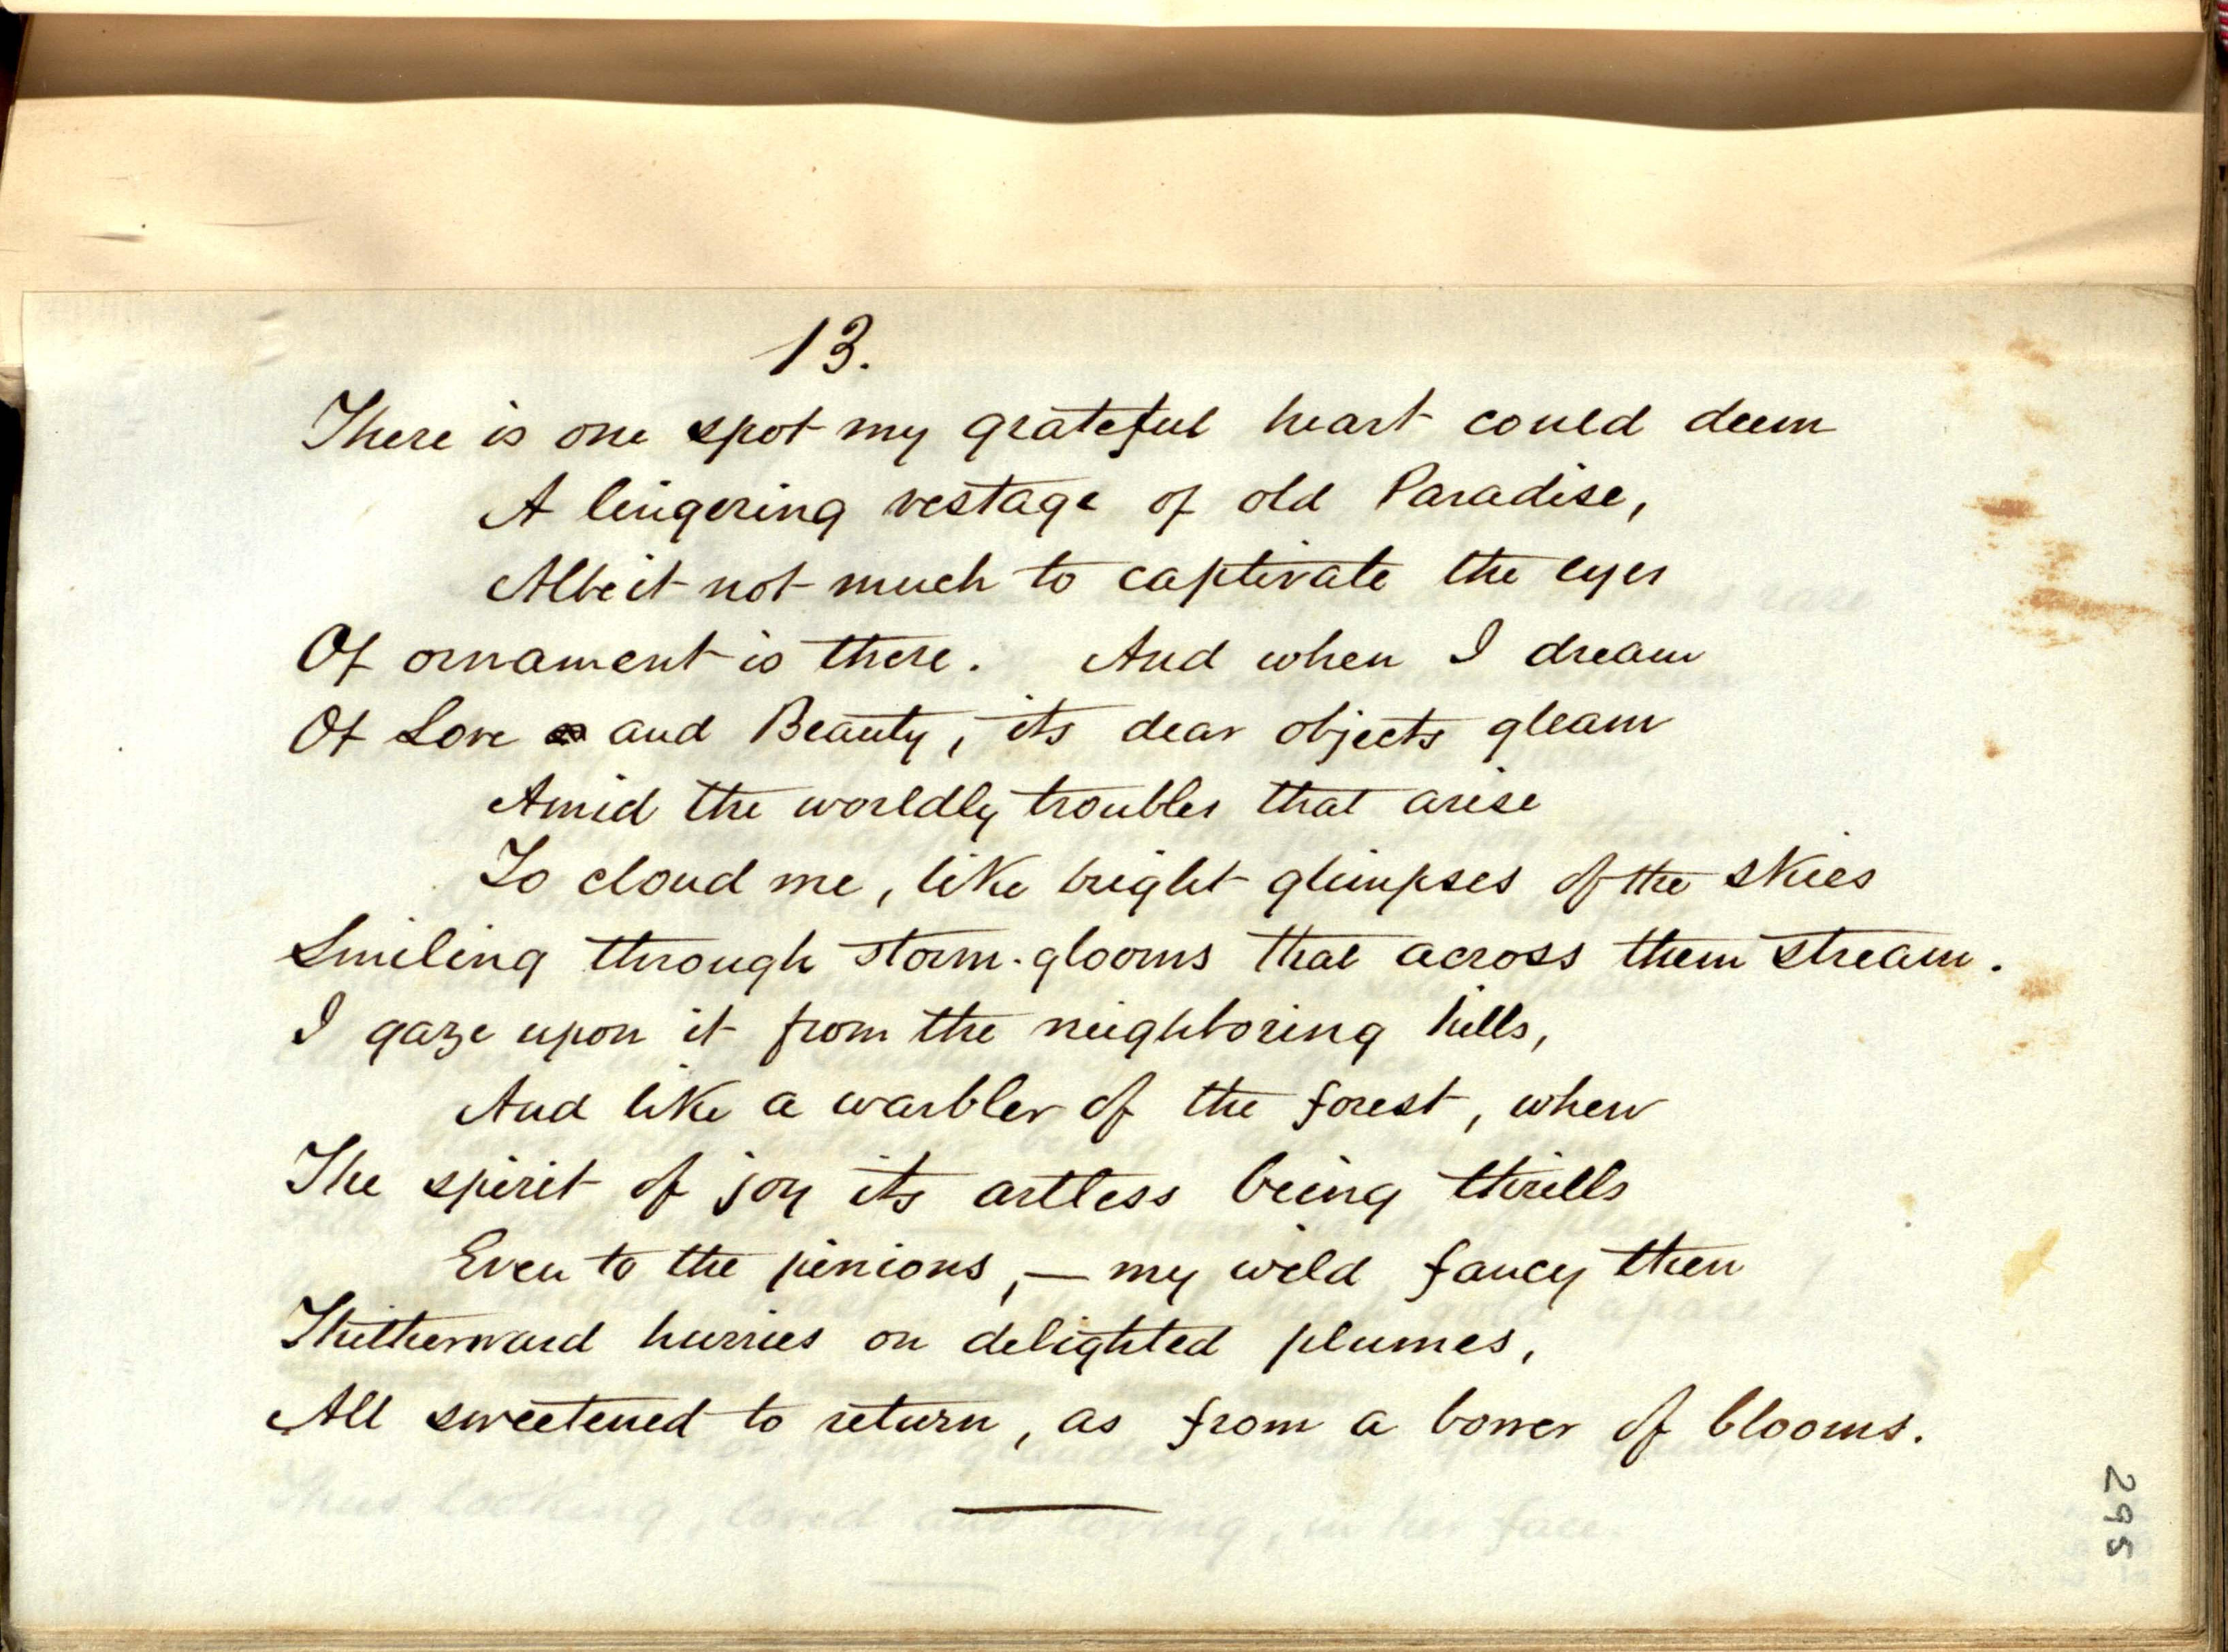 13.
There is one spot my grateful heart could deem
A lingering vestage of old Paradise,
Albeit not much to captivate the eyes
Of ornament is there. And when I dream
Of Love and Beauty, its dear objects gleam
Amid the worldly troubles that arise
To cloud me, like bright glimpses of the skies
Smiling through storm-glooms that across them stream.
I gaze upon it from the neighboring hills,
And like a warbler of the forest, when
The spirit of joy its artless being thrills
Even to the pinions, — my wild fancy then
Thitherward hurries on delighted plumes,
All sweetened to return, as from a bower of blooms.
Thus looking, loved and loving, in her face.
295